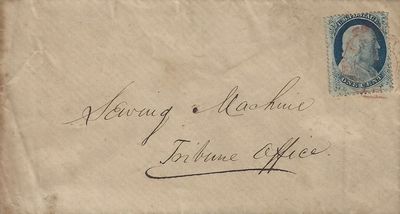 U.S. POSTAGE
ONE CENT
Sewing Machine
Tribune Office.